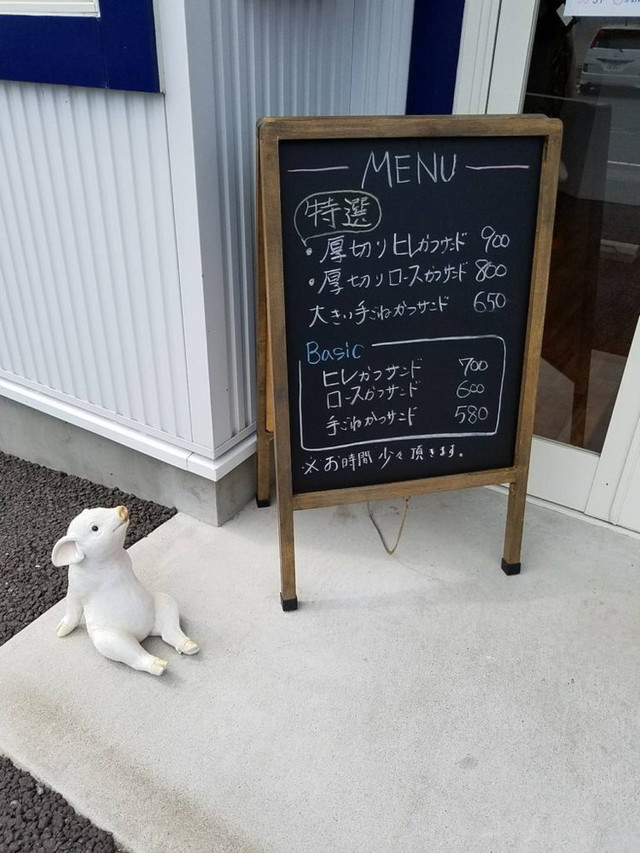 MENU
特選
・厚切りヒレかつサンド 900
・厚切りロースかつサンド 800
大きい手ごねかつサンド 650
Basic
ヒレかつサンド 700
ロースかつサンド 600
手ごねかつサンド 580
※お時間少々頂きます。